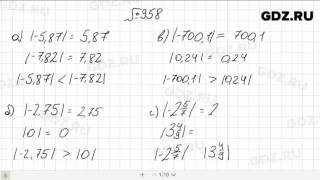 GDZ.RU
№958
а) |-5,87| = 5,87
|-7,82| = 7,82
|-5,87| < |-7,82|
б) |-2,75| = 2,75
|0| = 0
|-2,75| > |0|
в) |-700,1| = 700,1
|0,24| = 0,24
|-700,1| > |0,24|
г) |-2 5/7| = 2
|3 4/9| =
|-2 5/7| |3 4/9|
GDZ.RU
GDZ.RU